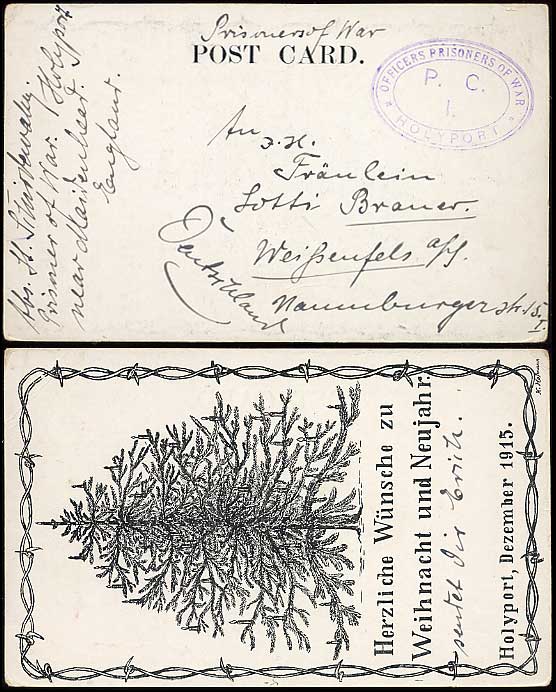 Prisoners of War
POST CARD.
OFFICERS PRISONERS OF WAR
P. C.
1.
HOLYPORT
An
z. H.
Fräulein
Lotti Brauer.
Weißenfels a/S.
Naumburgerstr. 15 I.
Deutschland
Prisoner of War. Holyport
near Maidenhead
England.
Herzliche Wünsche zu
Weihnacht und Neujahr.
sendet dir Erich.
Holyport, Dezember 1915.